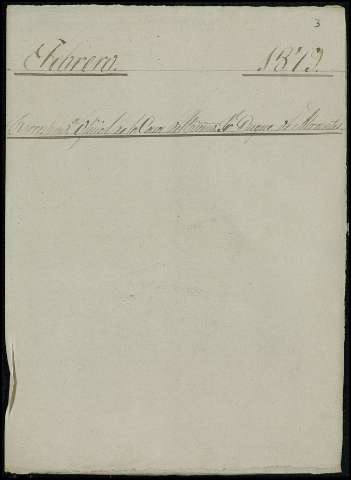 3
Febrero. 1879.
Corresponda. Oficial de la Casa del Excmo. Sr. Duque de Abrantes.